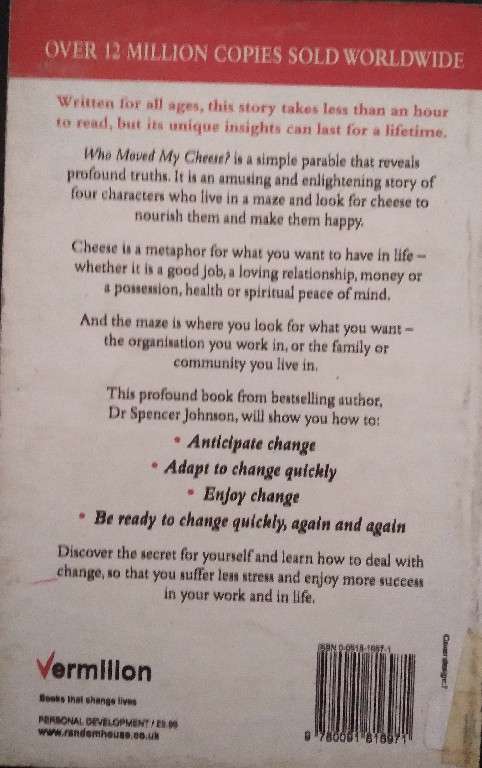 OVER 12 MILLION COPIES SOLD WORLDWIDE
Written for all ages, this story takes less than an hour
to read, but its unique insights can last for a lifetime.
Who Moved My Cheese? is a simple parable that reveals
profound truths. It is an amusing and enlightening story of
four characters who live in a maze and look for cheese to
nourish them and make them happy.
Cheese is a metaphor for what you want to have in life –
whether it is a good job, a loving relationship, money or
a possession, health or spiritual peace of mind.
And the maze is where you look for what you want –
the organisation you work in, or the family or
community you live in.
This profound book from bestselling author,
Dr Spencer Johnson, will show you how to:
• Anticipate change
• Adapt to change quickly
• Enjoy change
• Be ready to change quickly, again and again
Discover the secret for yourself and learn how to deal with
change, so that you suffer less stress and enjoy more success
in your work and in life.
Vermilion
Books that change lives
PERSONAL DEVELOPMENT /
www.randomhouse.co.uk
ISBN 0-0918-1697-1
9 780091 816971
Cover design: